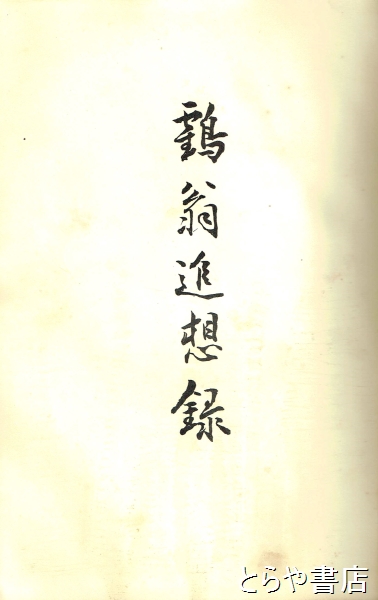 鶴翁追想録
とらや書店